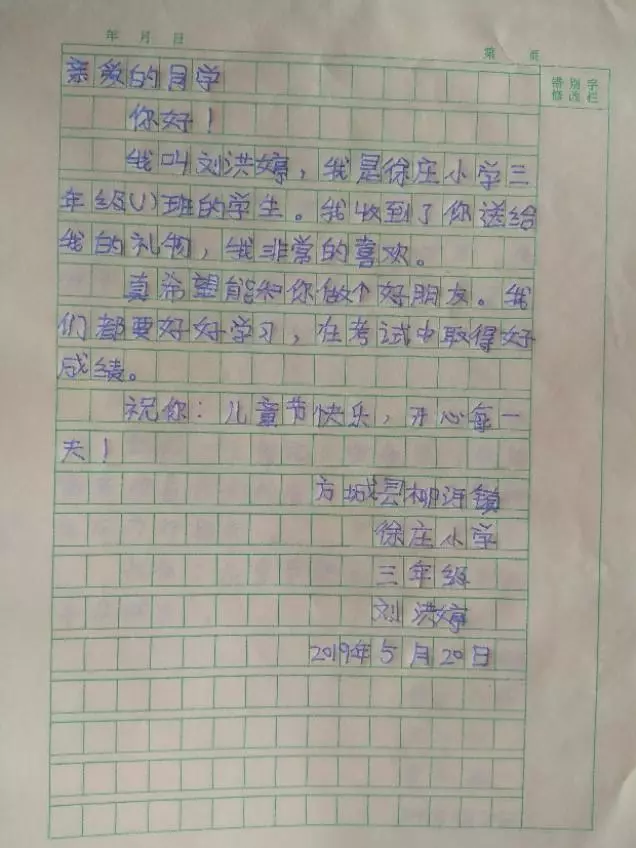 年 月 日
第 页
错别字
修改栏
亲爱的同学
你好！
我叫刘洪婷，我是徐庄小学三
年级(1)班的学生。我收到了你送给
我的礼物，我非常的喜欢。
真希望能和你做个好朋友。我
们都要好好学习，在考试中取得好
成绩。
祝你：儿童节快乐，开心每一
天！
方城县柳河镇
徐庄小学
三年级
刘洪婷
2019年5月20日